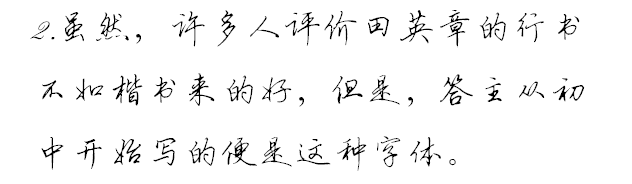 2.虽然，许多人评价田英章的行书
不如楷书来的好，但是，答主从初
中开始写的便是这种字体。